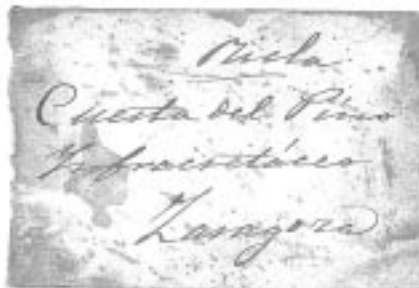 Ricla
Cuesta del Pino
Infracretáceo
Zaragoza